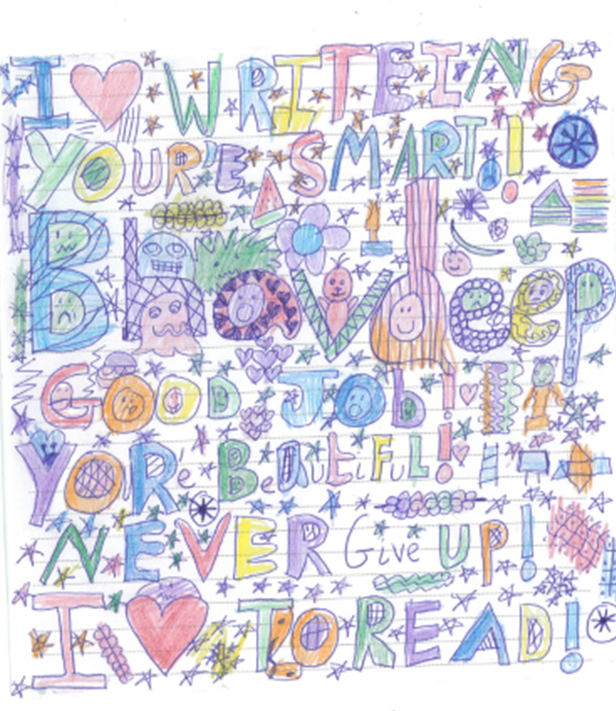 I ♥ WRITEING
YOUR'E SMART!!
Bhavdeep
GOOD JOB!
YOuR'e BeautiFUL!
NEVER Give UP!
I ♥ TO READ!